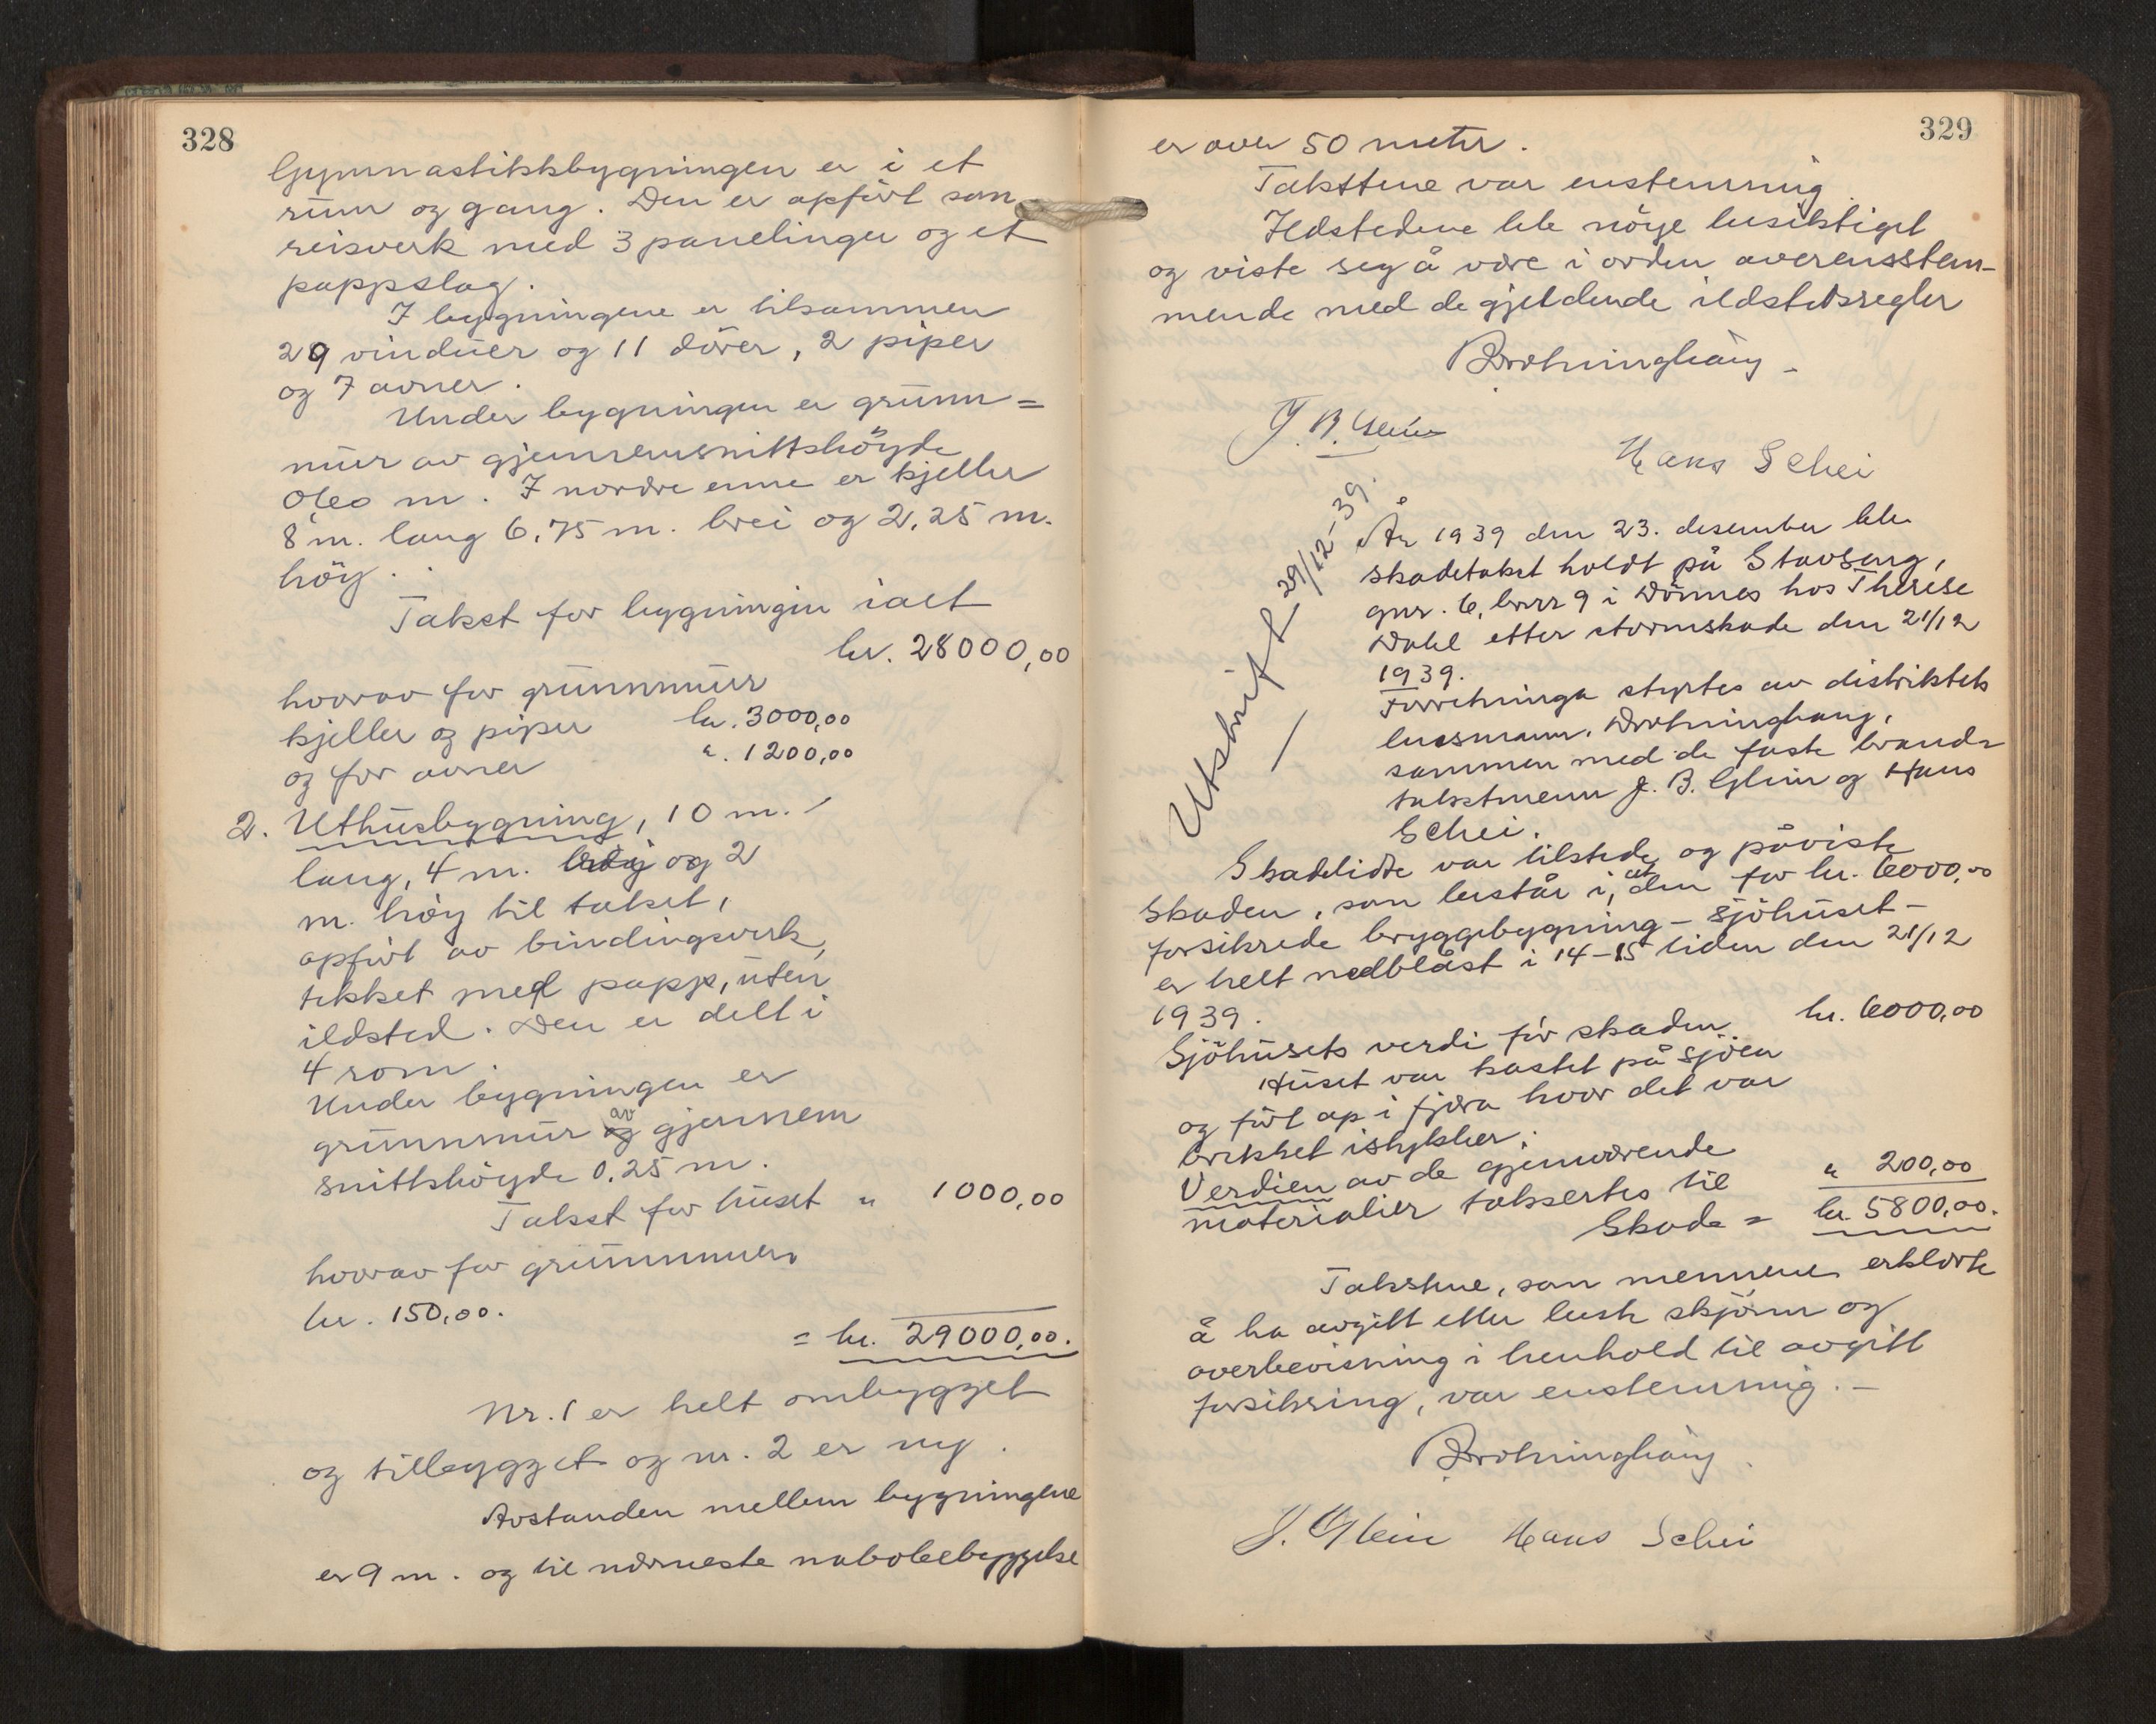 328
Gymnastikkbygningen er i et
rum og gang. Den er opført som
reisverk med 3 panelinger og et
pappslag.
I bygningene er tilsammen
29 vinduer og 11 dører, 2 piper
og 7 ovner.
Under bygningen er grunn=
mur av gjennemsnittshöyde
0,60 m. I nordre enne er kjeller
8 m. lang 6,75 m. brei og 2,25 m.
höy.
Takst for bygningin ialt
kr. 28000,00
hvorav for grunnmur
kjeller og piper kr. 3000,00
og for ovner ". 1200,00
2. Uthusbygning, 10 m.
lang, 4 m. brei og 2
m. höy til taket,
opført av bindingsverk,
tekket med papp, uten
ildsted. Den er delt i
4 rom.
Under bygningen er
grunnmur av gjennem
snittshöyde 0,25 m.
Takst for huset " 1000,00
hvorav for grunnmur
kr. 150,00.
= kr. 29000,00.
Nr. 1 er helt ombygget
og tilbygget og nr. 2 er ny.
Avstanden mellem bygningene
er 9 m. og til nærmeste nabobebyggelse
329
er over 50 meter.
Takstene var enstemmig.
Ildstedene ble nöye besiktiget
og viste seg å være i orden overensstem-
mende med de gjeldende ildstedsregler
Drotninghaug
J. B. Glein
Hans Schei
Utskrift 29/12-39.
År 1939 den 23. desember ble
skadetakst holdt på Stavseng,
gnr. 6, bnr 9 i Dönnes hos Therese
Dahl etter stormskade den 21/12
1939.
Forretninga styrtes av distriktets
lensmann, Drotninghaug,
sammen med de faste brand-
takstmenn J. B. Glein og Hans
Schei.
Skadelidte var tilstede og påviste
skaden, som består i, at den for kr. 6000,00
forsikrede bryggebygning - sjöhuset -
er helt nedblåst i 14-15 tiden den 21/12
1939.
Sjöhusets verdi för skaden kr. 6000,00
Huset var kastet på sjöen
og fört op i fjæra hvor det var
brekket istykker.
Verdien av de gjenværende
materialier takseres til " 200,00
Skade = kr. 5800,00.
Takstene, som mennene erklærte
å ha avgitt etter beste skjönn og
overbevisning i henhold til avgitt
forsikring, var enstemmig. -
Drotninghaug
J. Glein Hans Schei